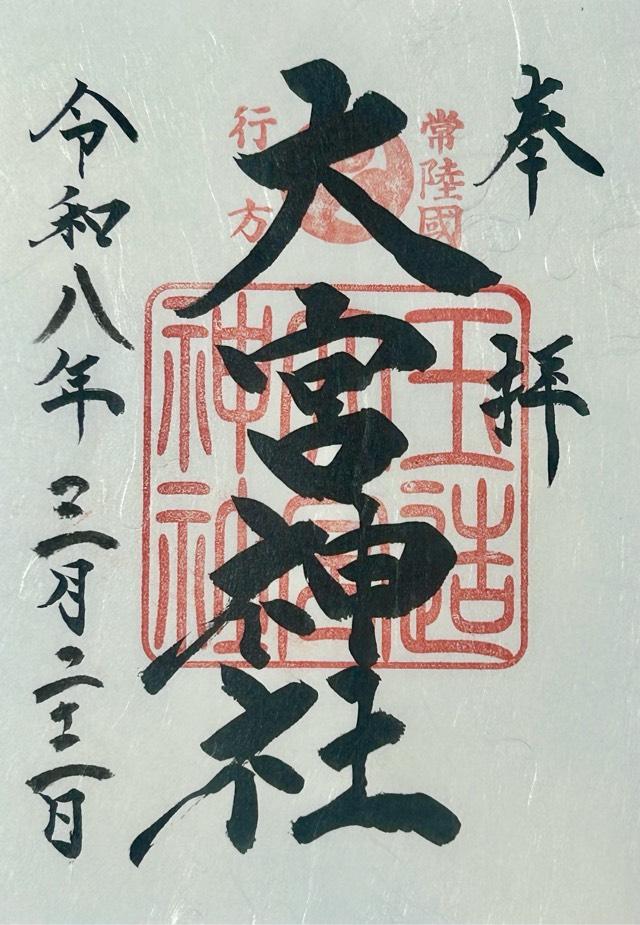 奉拝
常陸國
行方
大宮神社
玉造
大宮
神社
令和八年三月二十二日